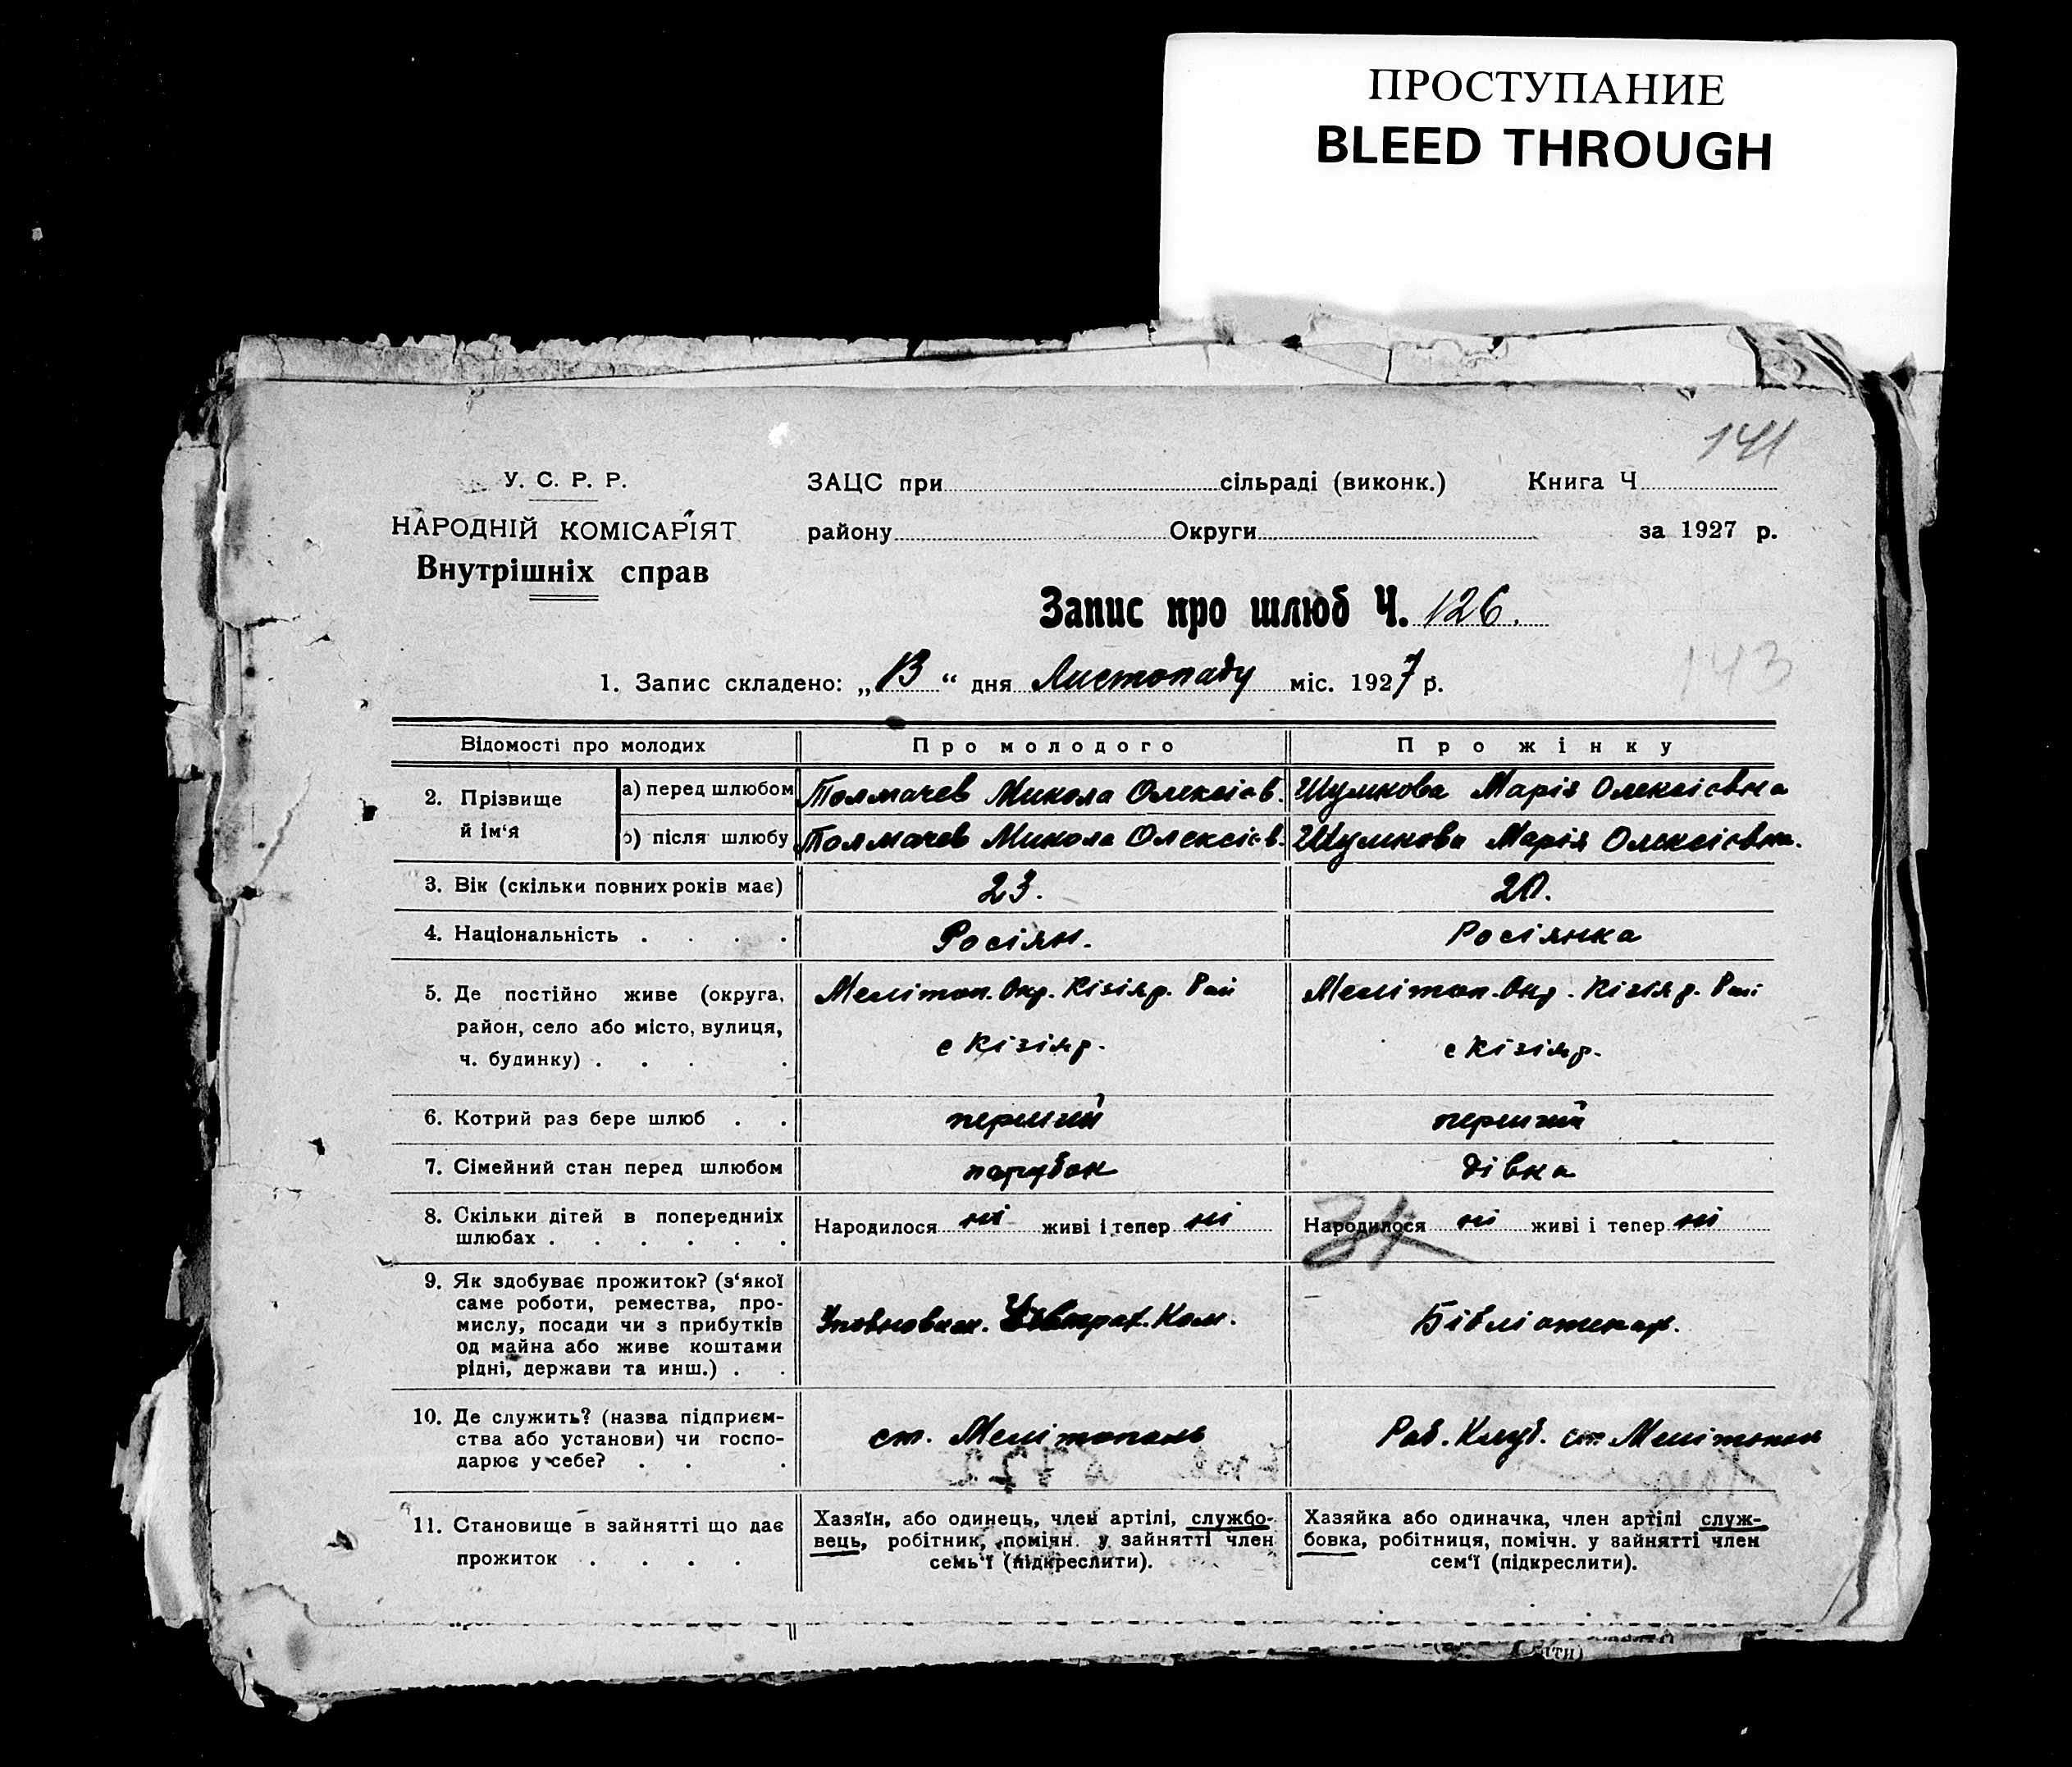 ПРОСТУПАНИЕ
BLEED THROUGH
141
У. С. Р. Р.
НАРОДНІЙ КОМІСАРІЯТ
Внутрішніх справ
ЗАЦС при сільраді (виконк.) Книга Ч
району Округи за 1927 р.
Запис про шлюб Ч. 126.
143
1. Запис складено: „13“ дня Листопаду міс. 1927 р.
Відомості про молодих Про молодого Про жінку
2. Прізвище й ім‘я
а) перед шлюбом Толмачев Микола Олексіїв. Шумкова Марія Олексіївна
б) після шлюбу Толмачев Микола Олексіїв. Шумкова Марія Олексіївна.
3. Вік (скільки повних років має) 23. 20.
4. Національність . . . . Росіян. Росіянка
5. Де постійно живе (округа,
район, село або місто, вулиця,
ч. будинку) . . . .
Мелітоп. Окр. Кізіяр. Рай
с Кізіяр.
Мелітоп. Окр. Кізіяр. Рай
с Кізіяр.
6. Котрий раз бере шлюб . . перший перший
7. Сімейний стан перед шлюбом парубок дівка
8. Скільки дітей в попередниіх
шлюбах . . . . . .
Народилося ні живі і тепер ні
Народилося ні живі і тепер ні
9. Як здобуває прожиток? (з‘якої
саме роботи, ремества, про-
мислу, посади чи з прибутків
од майна або живе коштами
рідні, держави та инш.) . .
Уповноваж. Ком.
Бібліотекар.
10. Де служить? (назва підприєм-
ства або установи) чи госпо-
дарює у себе? . . .
ст. Мелітополь
Раб. Клуб. ст. Мелітополь
11. Становище в зайнятті що дає
прожиток . . . .
Хазяїн, або одинець, член артілі, службо-
вець, робітник, помічн. у зайнятті член
семь‘ї (підкреслити).
Хазяйка або одиначка, член артілі служ-
бовка, робітниця, помічн. у зайнятті член
сем‘ї (підкреслити).